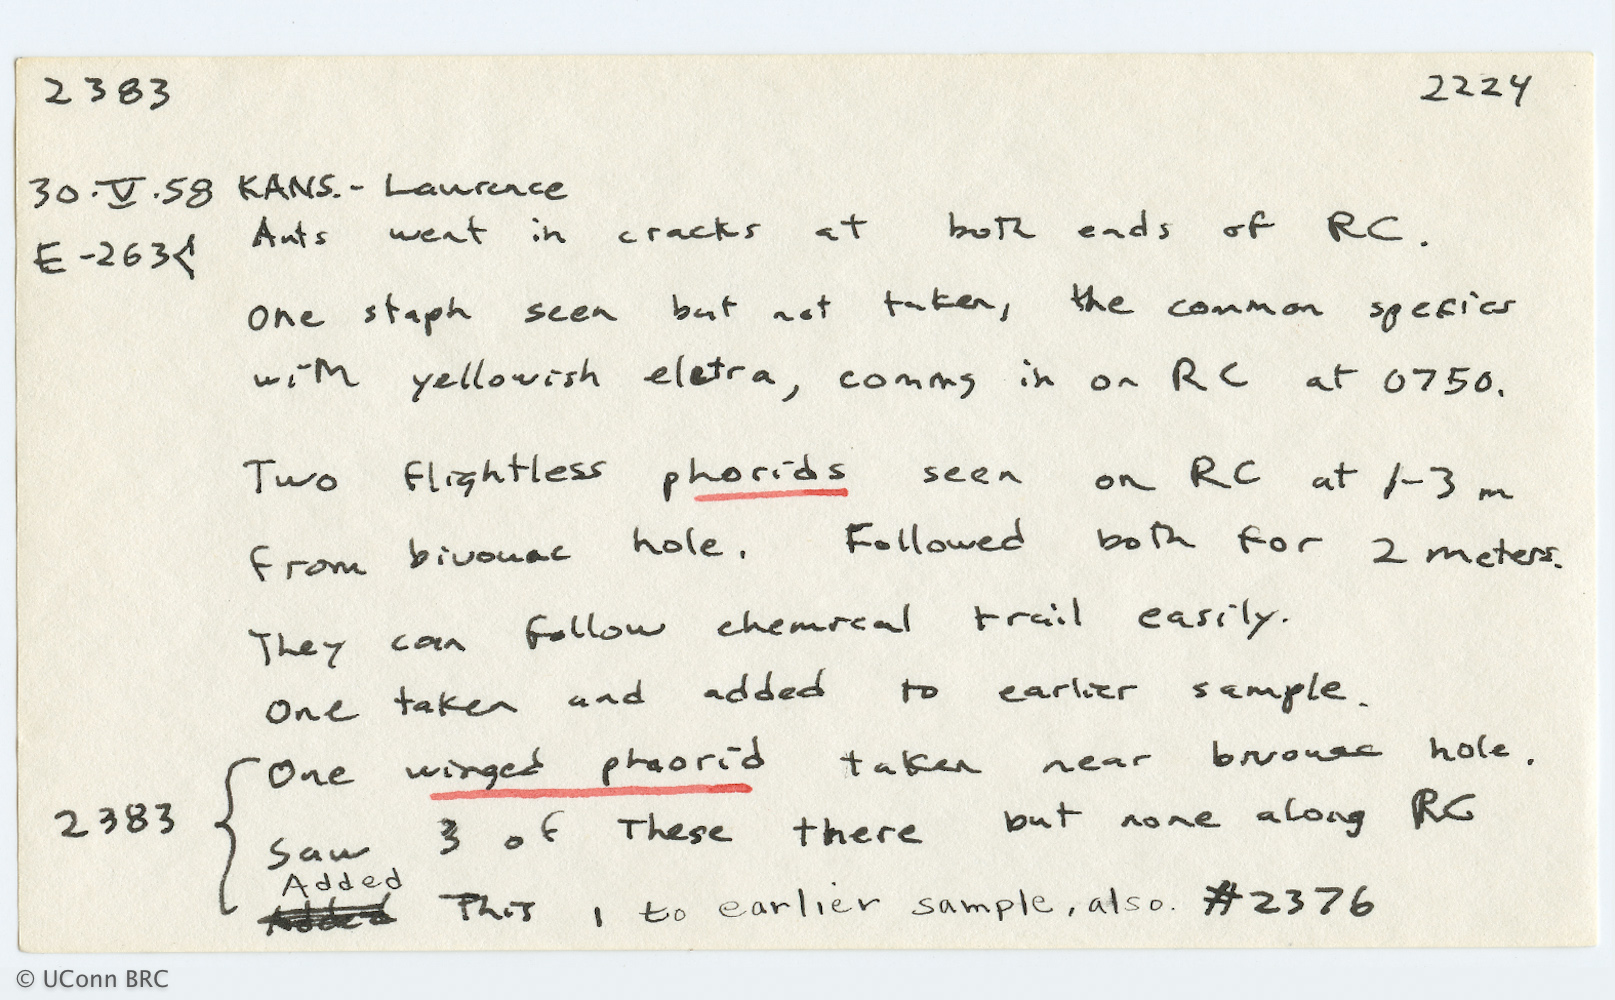 2383 2224
30.V.58 KANS.- Lawrence
E-263 Ants went in cracks at both ends of RC.
One staph seen but not taken, the common species
with yellowish eletra, coming in on RC at 0750.
Two flightless phorids seen on RC at 1-3 m
from bivouac hole. Followed both for 2 meters.
They can follow chemical trail easily.
One taken and added to earlier sample.
One winged phaorid taken near bivouac hole.
2383 Saw 3 of These there but none along RC
Added
Added This 1 to earlier sample, also. #2376
© UConn BRC